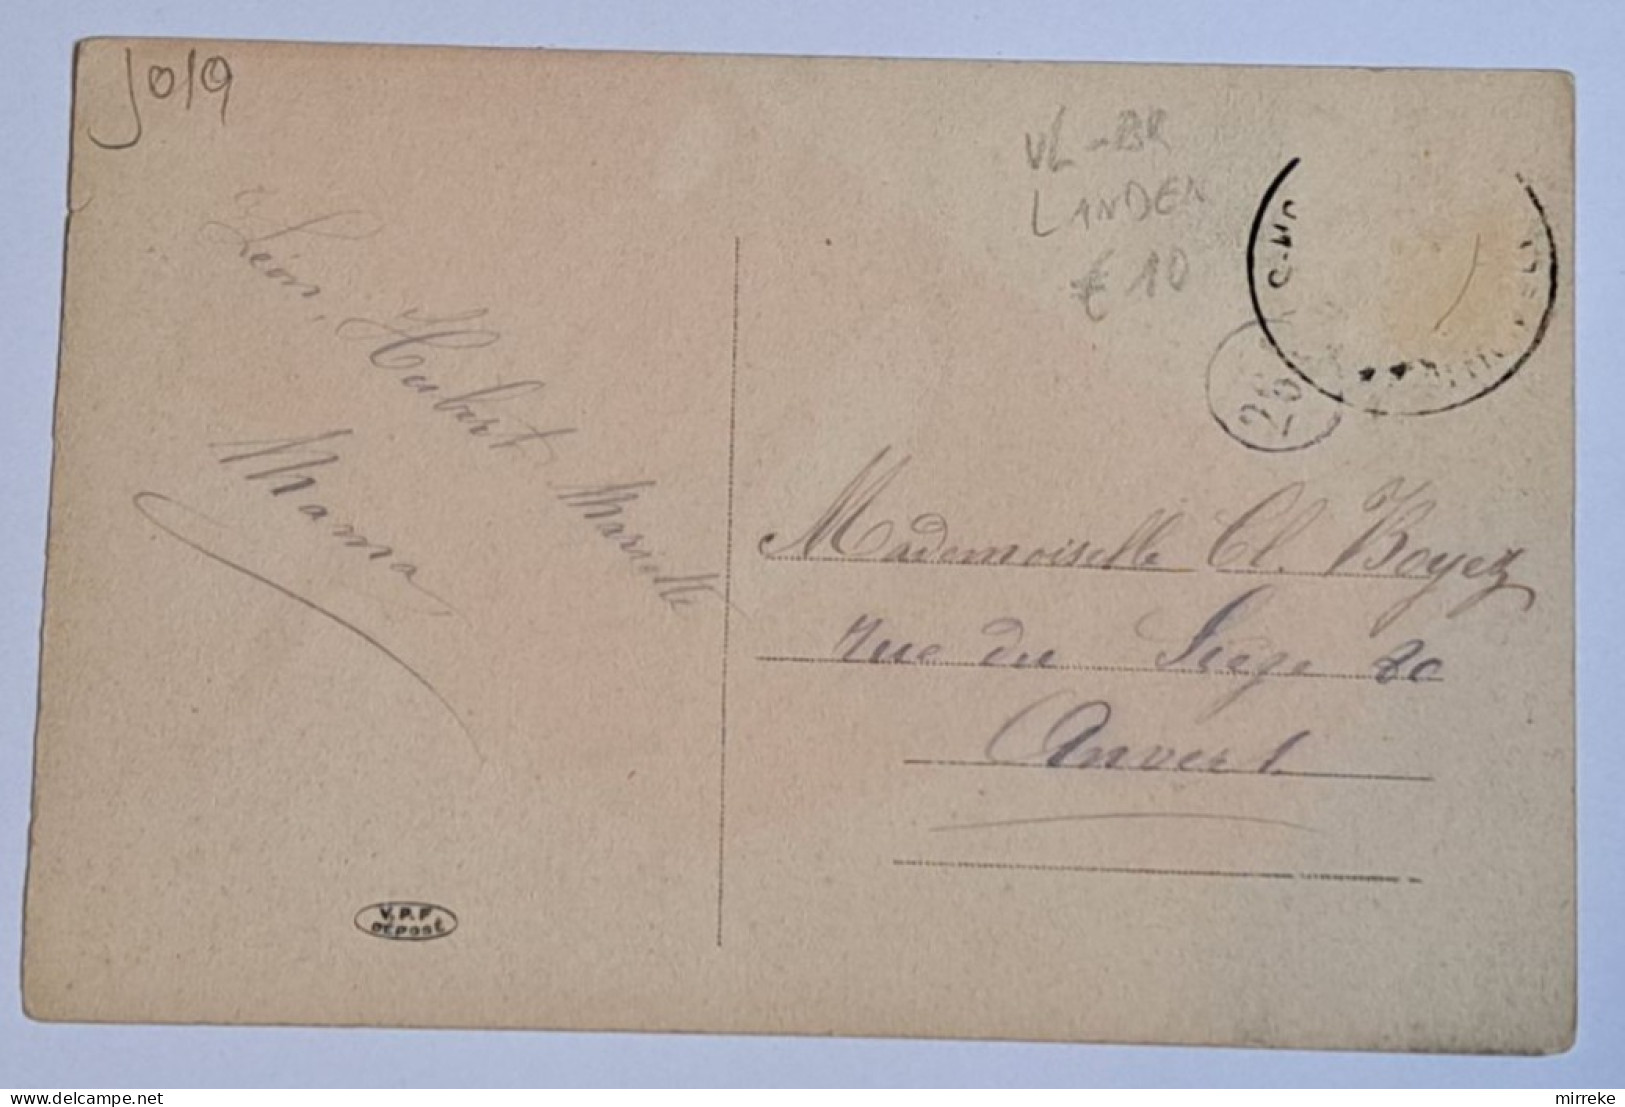 Jo19
VL-BR
LANDEN
€ 10
Léon, Hubert Mariette
Mama
Mademoiselle Cl. Boyez
rue du Siège 20
Anvers
V.P.F
DÉPOSÉ
mirreke